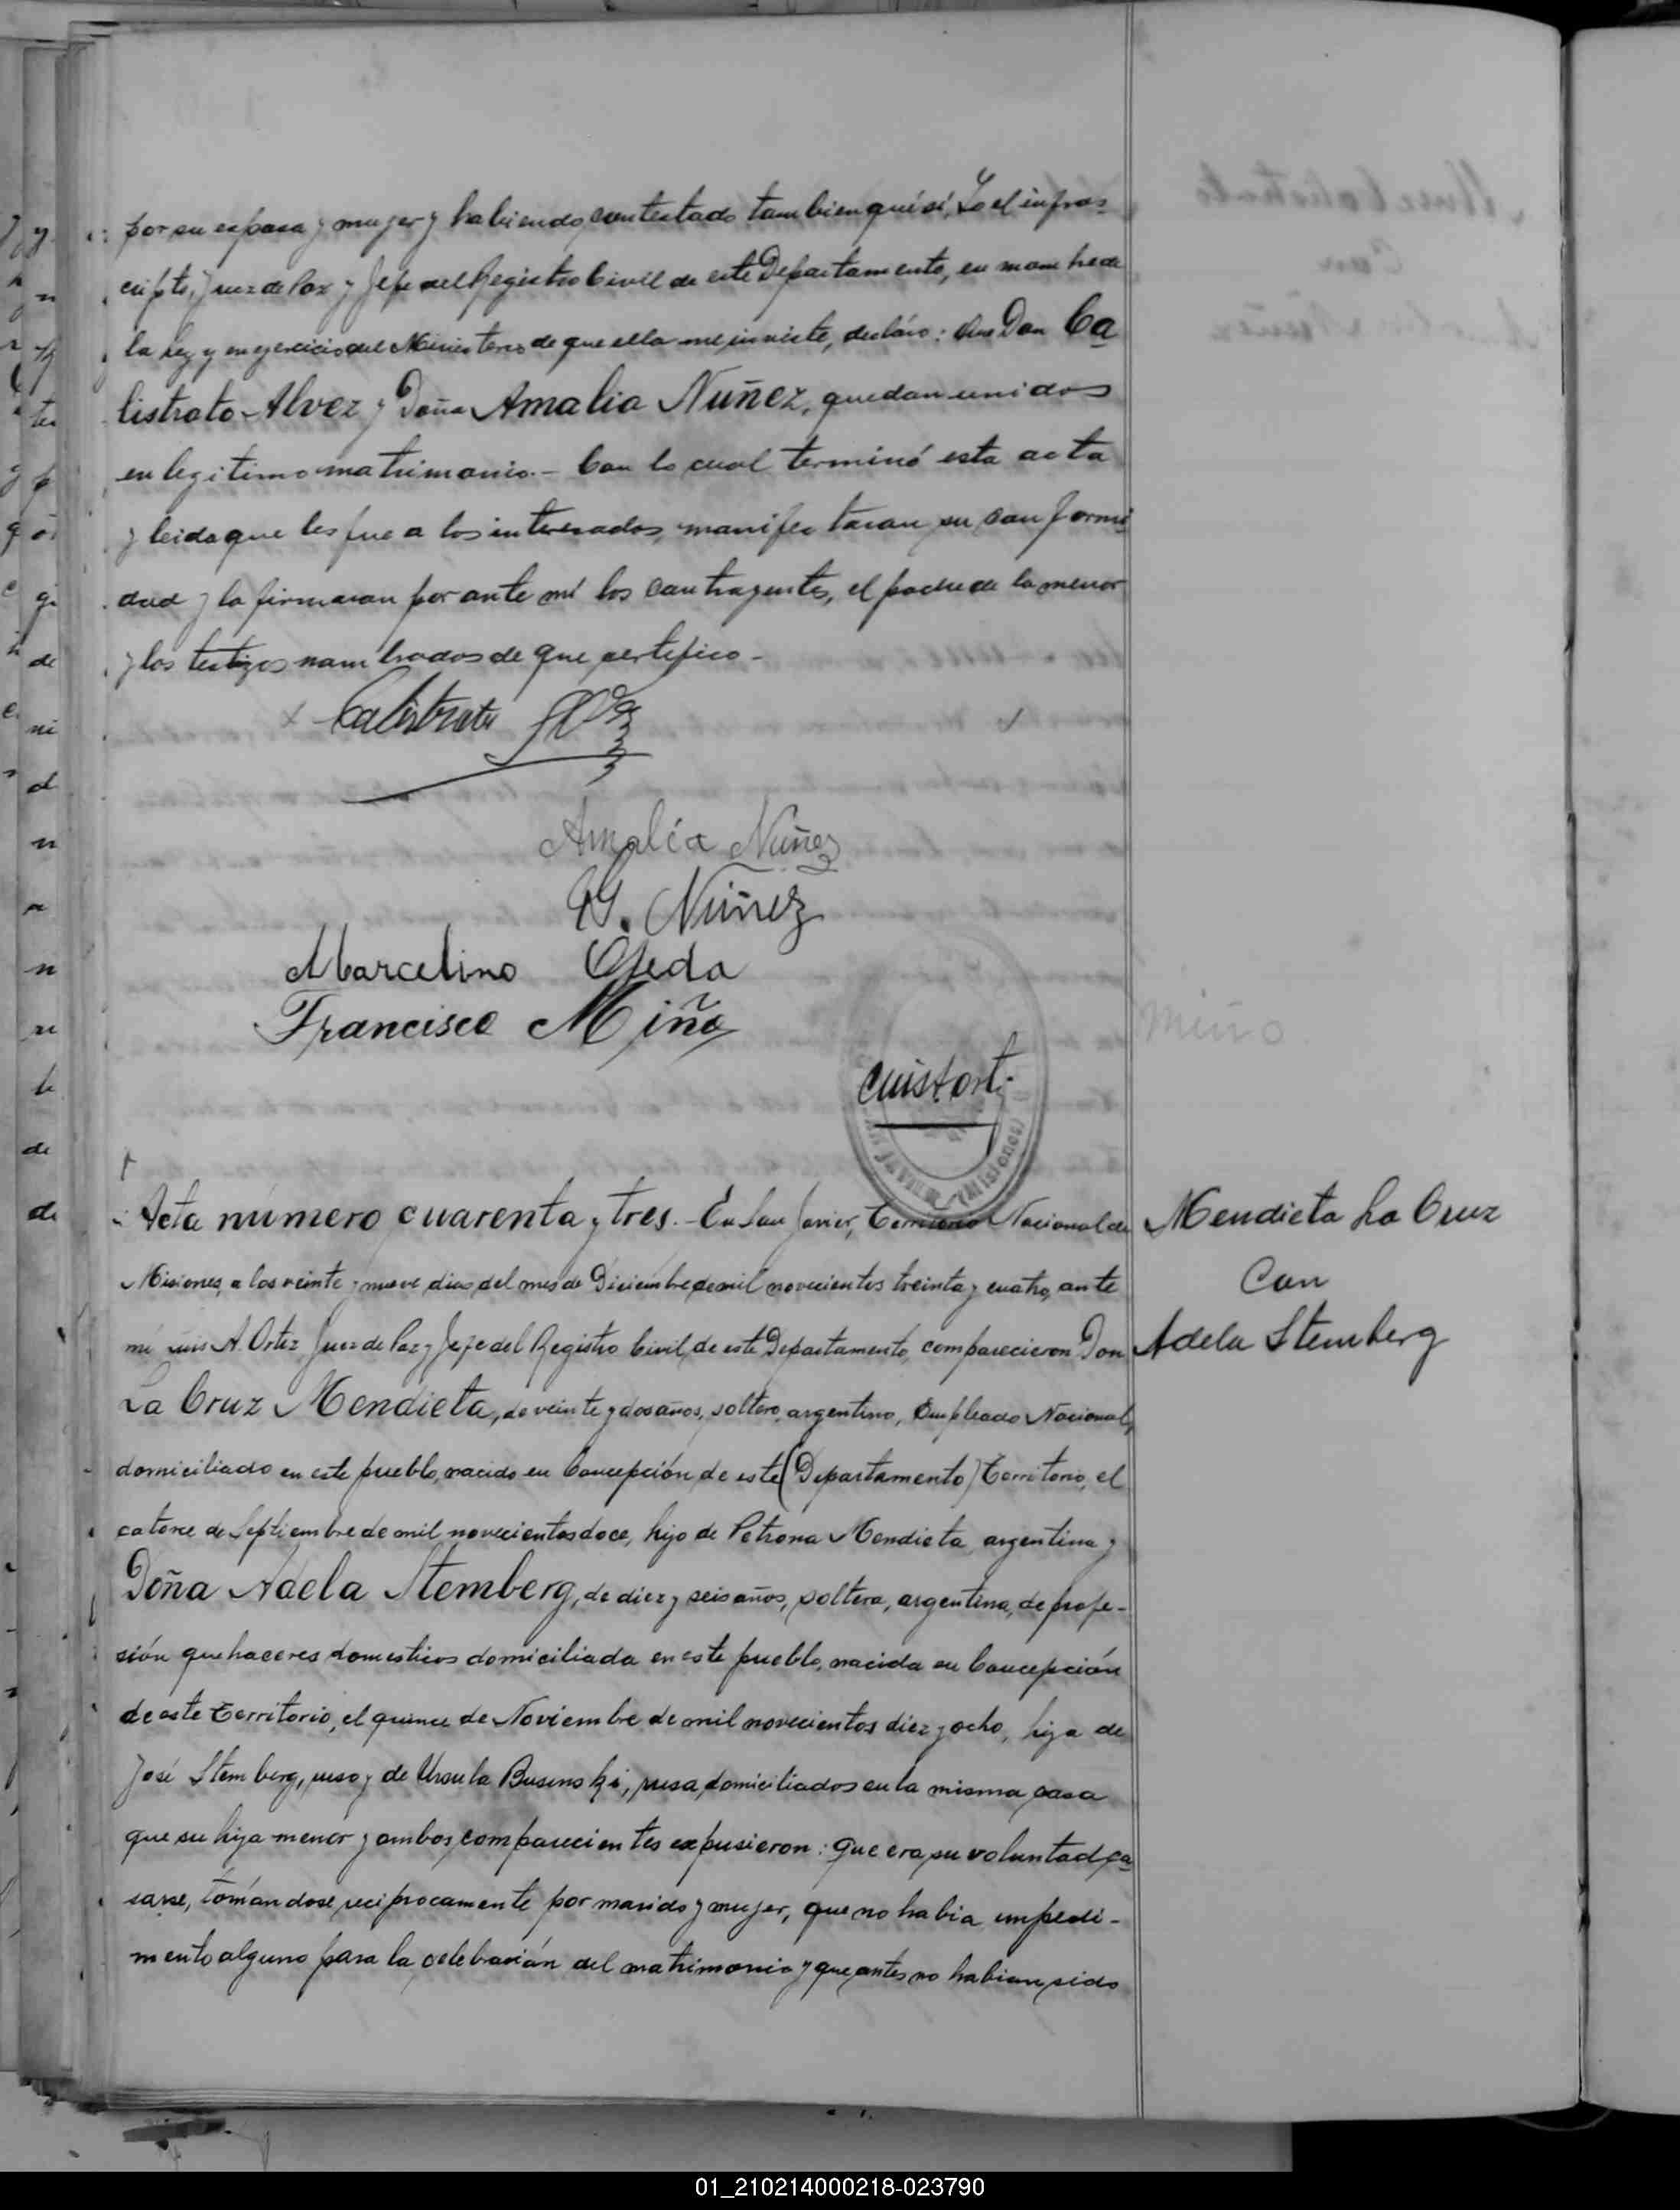 por su esposa y mujer y habiendo contestado tambien que si, Yo el infras-
cripto, Juez de Paz y Jefe del Registro Civil de este Departamento, en nombre de
la ley y en ejercicio del Ministerio de que ella me inviste, declaro: Que Don Ca
listrato Alvez y Doña Amalia Nuñez, quedan unidos
en legitimo matrimonio.- Con lo cual terminó esta acta
y leida que les fue a los interesados, manifestaran su conformi
dad y la firmaran por ante mi los contrayentes, el padre de la menor
y los testigos nombrados de que certifico -
Calistrato Alvez
Amalia Nuñez
G. Nuñez
Marcelino Ojeda
Francisco Miño
Miño
Luis A Ort.
JAVIER (Misiones)
Acta número cuarenta y tres.- En San Javier, Territorio Nacional de
Mendieta La Cruz
Misiones, a los veinte y nueve dias del mes de Diciembre de mil novecientos treinta y cuatro, ante
Con
mi Luis A. Ortiz Juez de Paz y Jefe del Registro Civil, de este Departamento, comparecieron Don
Adela Stemberg
La Cruz Mendieta, de veinte y dos años, soltero, argentino, Empleado Nacional,
domiciliado en este pueblo, nacido en Concepción de este (Departamento) Territorio, el
catorce de Septiembre de mil novecientos doce, hijo de Petrona Mendieta, argentina y
Doña Adela Stemberg, de diez y seis años, soltera, argentina, de profe-
sión quehaceres domesticos domiciliada en este pueblo, nacida en Concepción
de este Territorio, el quince de Noviembre de mil novecientos diez y ocho, hija de
José Stemberg, ruso y de Ursula Businski, rusa, domiciliados en la misma casa
que su hija menor y ambos comparecientes expusieron: Que era su voluntad ca
sarse, tomandose reciprocamente por marido y mujer, que no habia impedi-
mento alguno para la celebración del matrimonio y que antes no habian sido
01_210214000218-023790